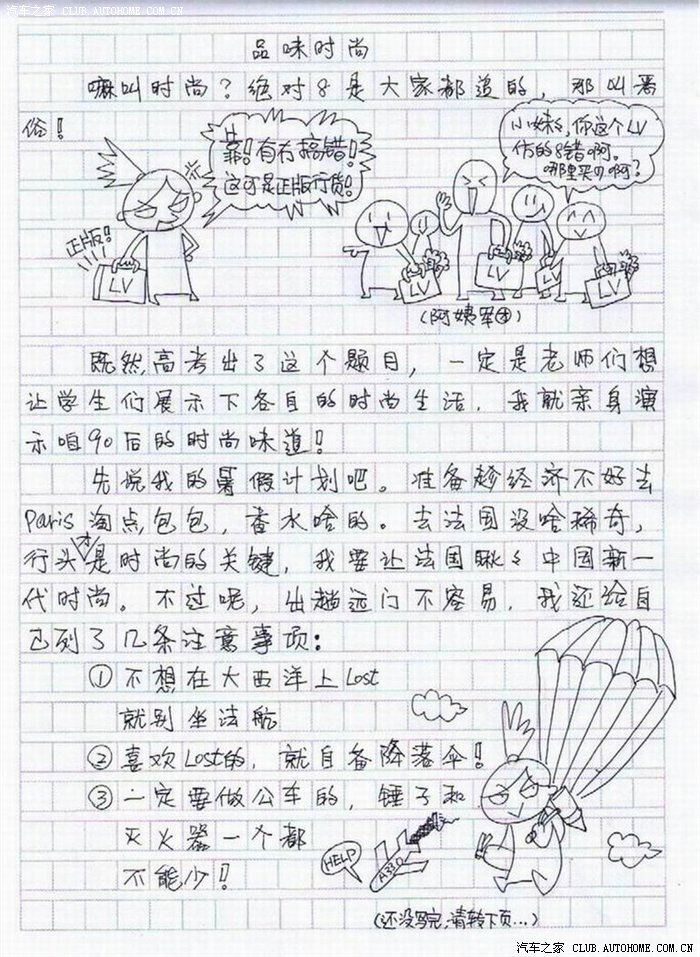 汽车之家 CLUB.AUTOHOME.COM.CN
品味时尚
嘛叫时尚？绝对8是大家都追的，那叫恶
俗！
靠！有冇搞错！
这可是正版行货！
小妹々，你这个LV
仿的8错啊。
哪里买D啊？
正版！
LV
LV
LV
LV
LV
（阿姨军团）
既然高考出了这个题目，一定是老师们想
让学生们展示下各自的时尚生活，我就亲身演
示咱90后的时尚味道！
先说我的暑假计划吧。准备趁经济不好去
Paris淘点包包，香水啥的。去法国没啥稀奇，
行头才是时尚的关键，我要让法国瞅々中国新一
代时尚。不过呢，出趟远门不容易，我还给自
己列了几条注意事项：
①不想在大西洋上Lost
就别坐法航
②喜欢Lost的，就自备降落伞！
③一定要做公车的，锤子和
灭火器一个都
不能少！
HELP
A330
（还没写完，请转下页...）
汽车之家 CLUB.AUTOHOME.COM.CN